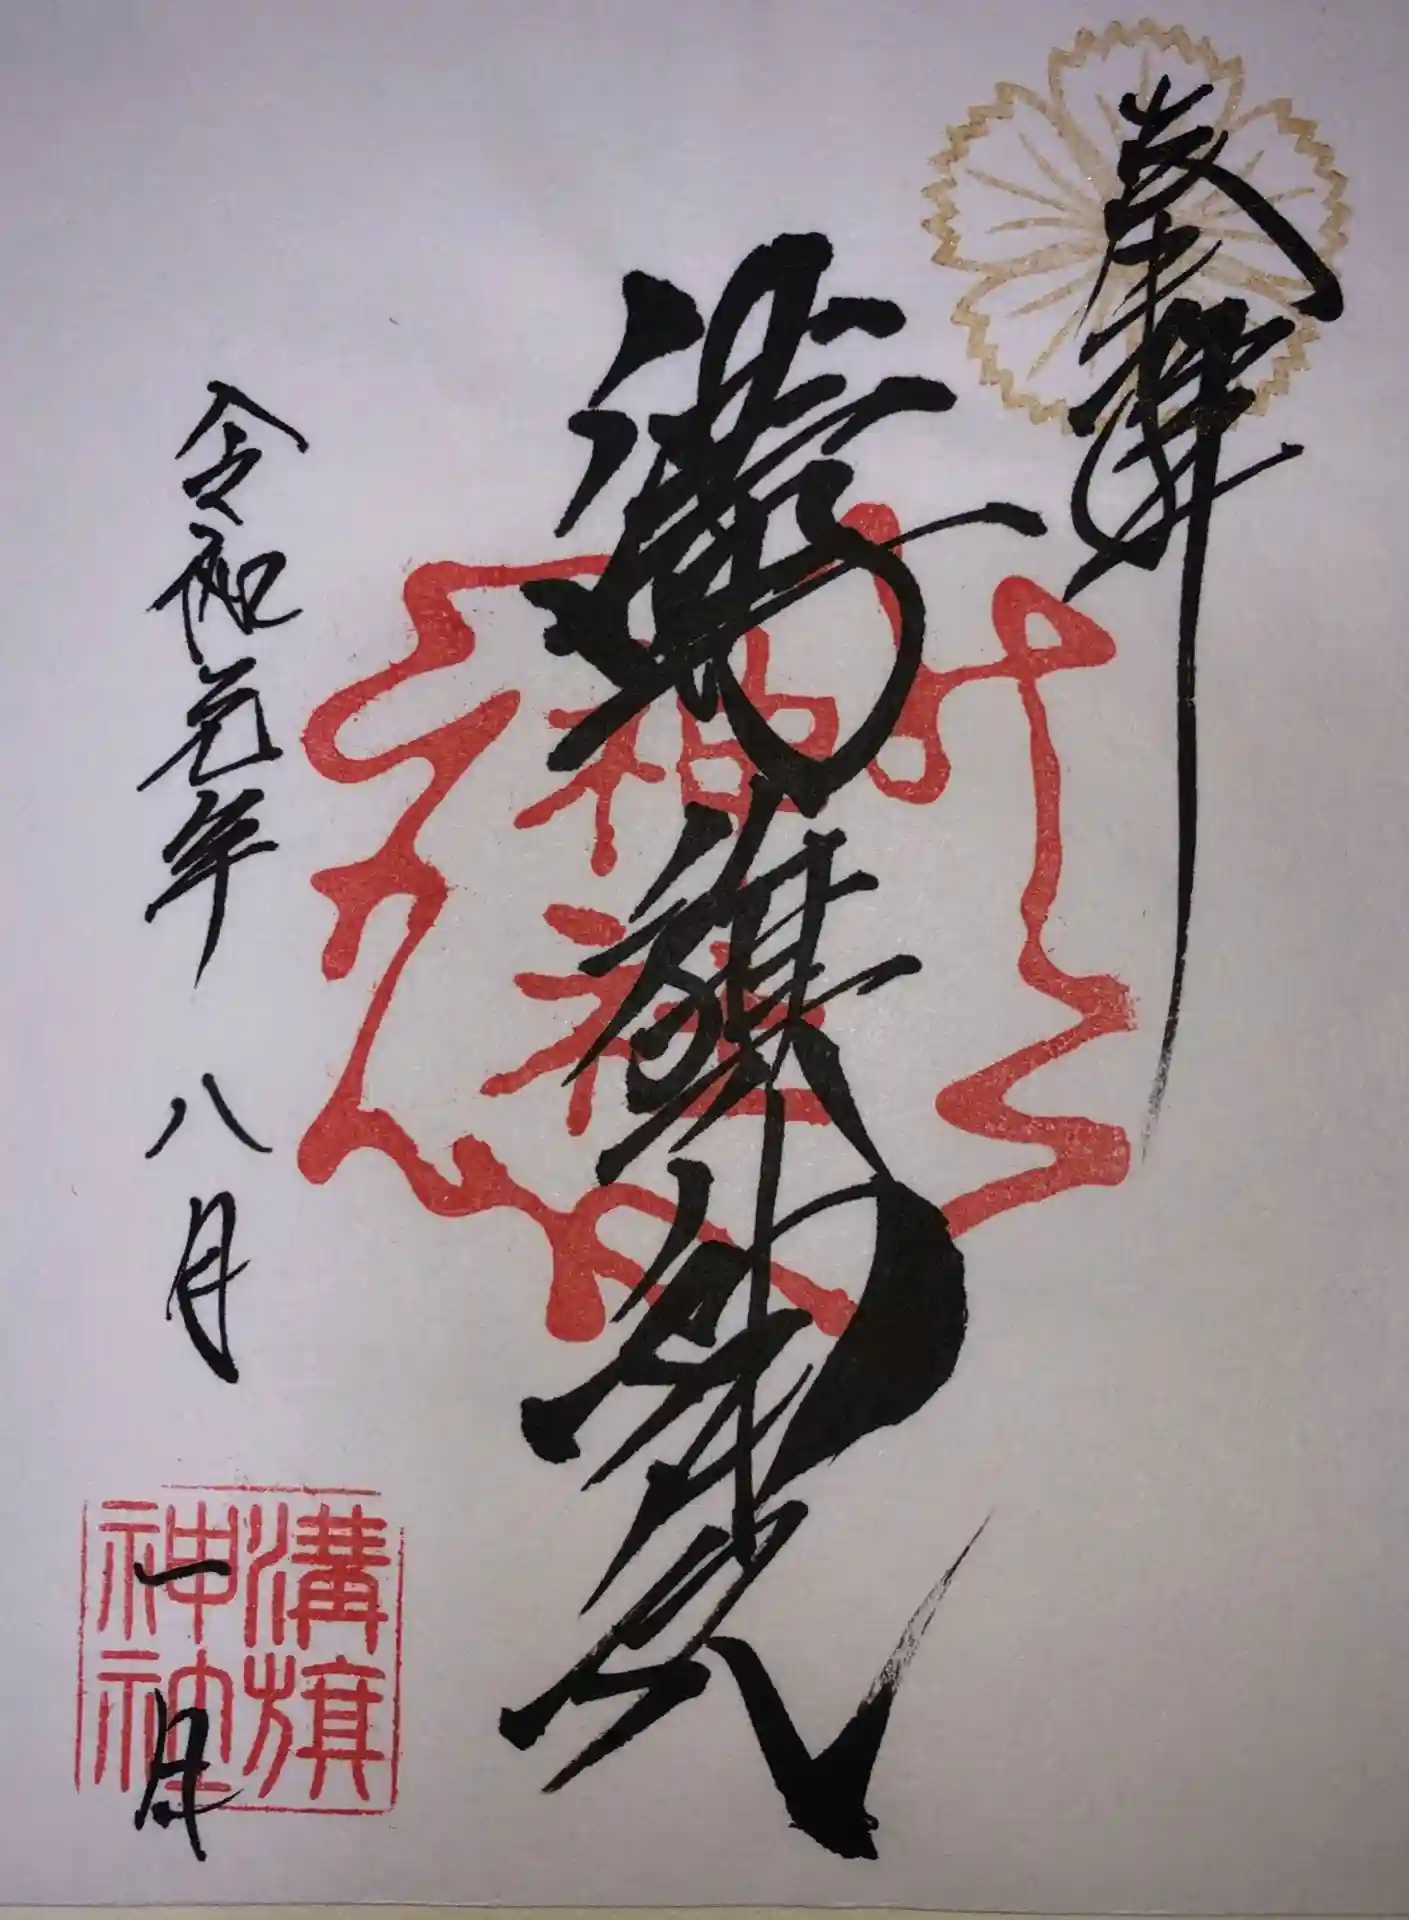 奉拝
溝旗神社
神社
令和元年 八月 一日
溝旗
神社